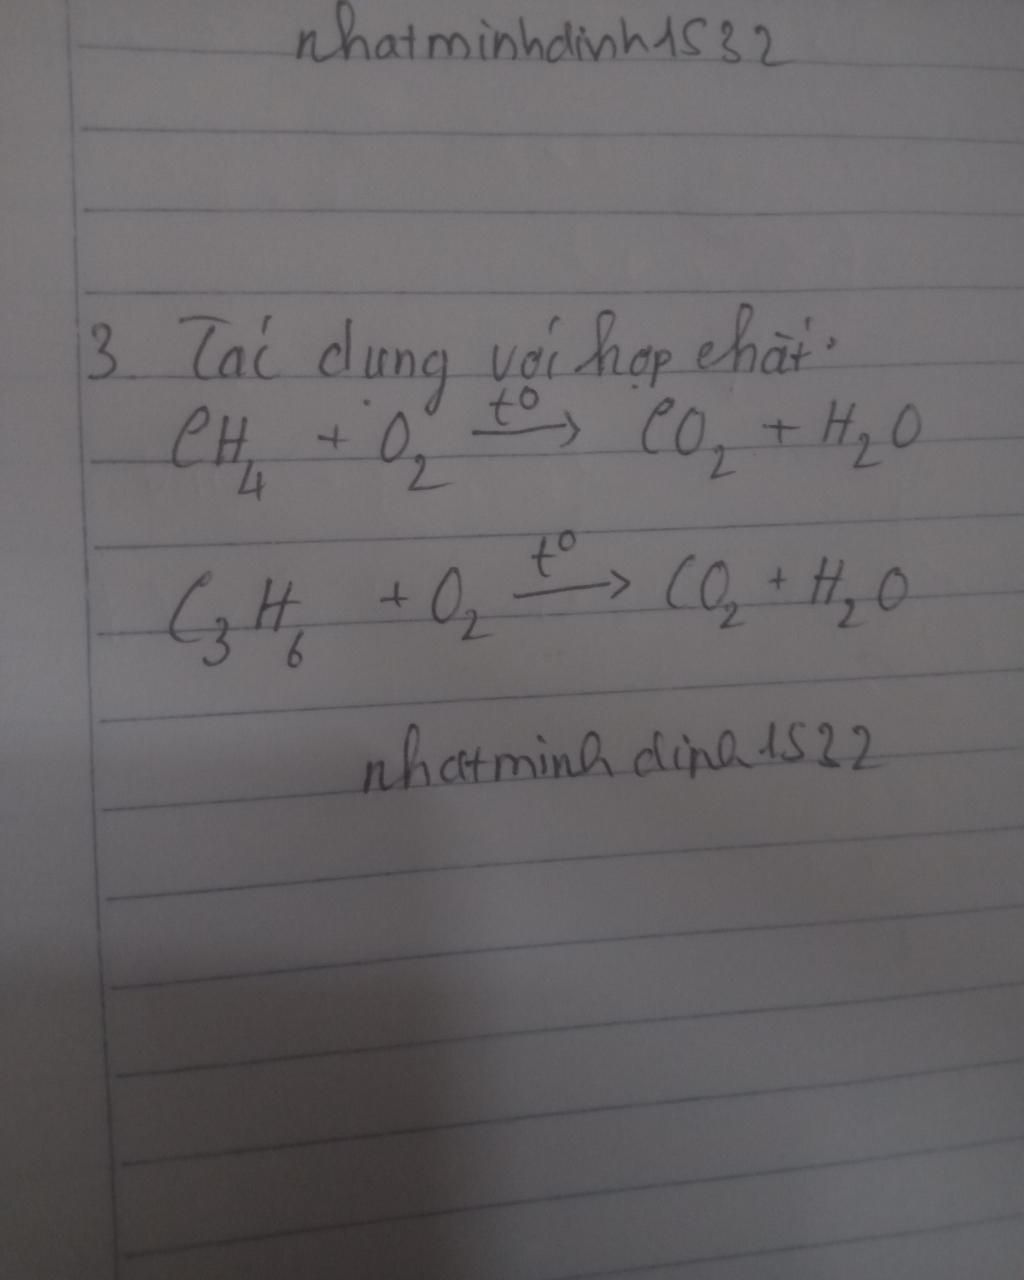 nhatminhdinh1532
3. Tác dụng với hợp chất:
CH₄ + O₂ t⁰→ CO₂ + H₂O
C₃H₆ + O₂ t⁰→ CO₂ + H₂O
nhatminh dinh1532